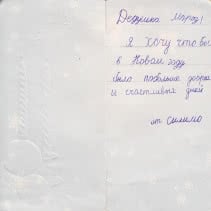 Дедушка мароз!
Я хочу что бы
в Новам году
было побольше добра
и счастливых дней
от